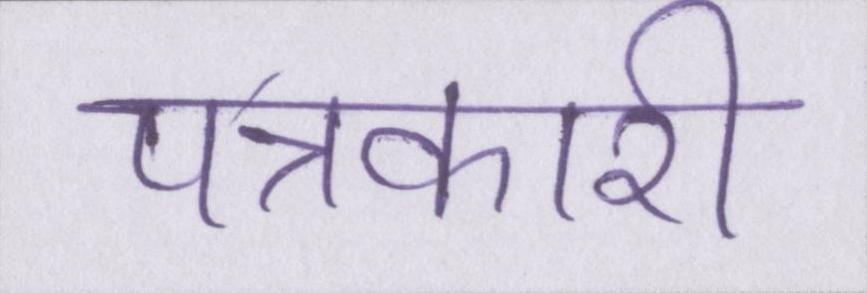 पत्रकारी